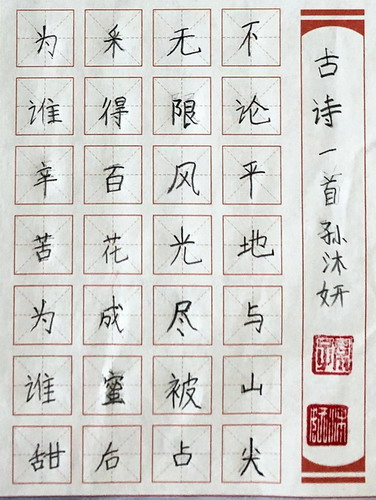 古诗一首孙沐妍
不论平地与山尖
无限风光尽被占
采得百花成蜜后
为谁辛苦为谁甜